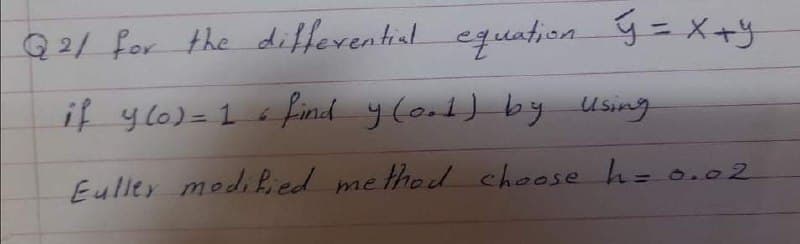 Q2/ for the differential equation ý = x+y
if y(0)=1 , find y(0.1) by using
Euller modified method choose h= 0.02